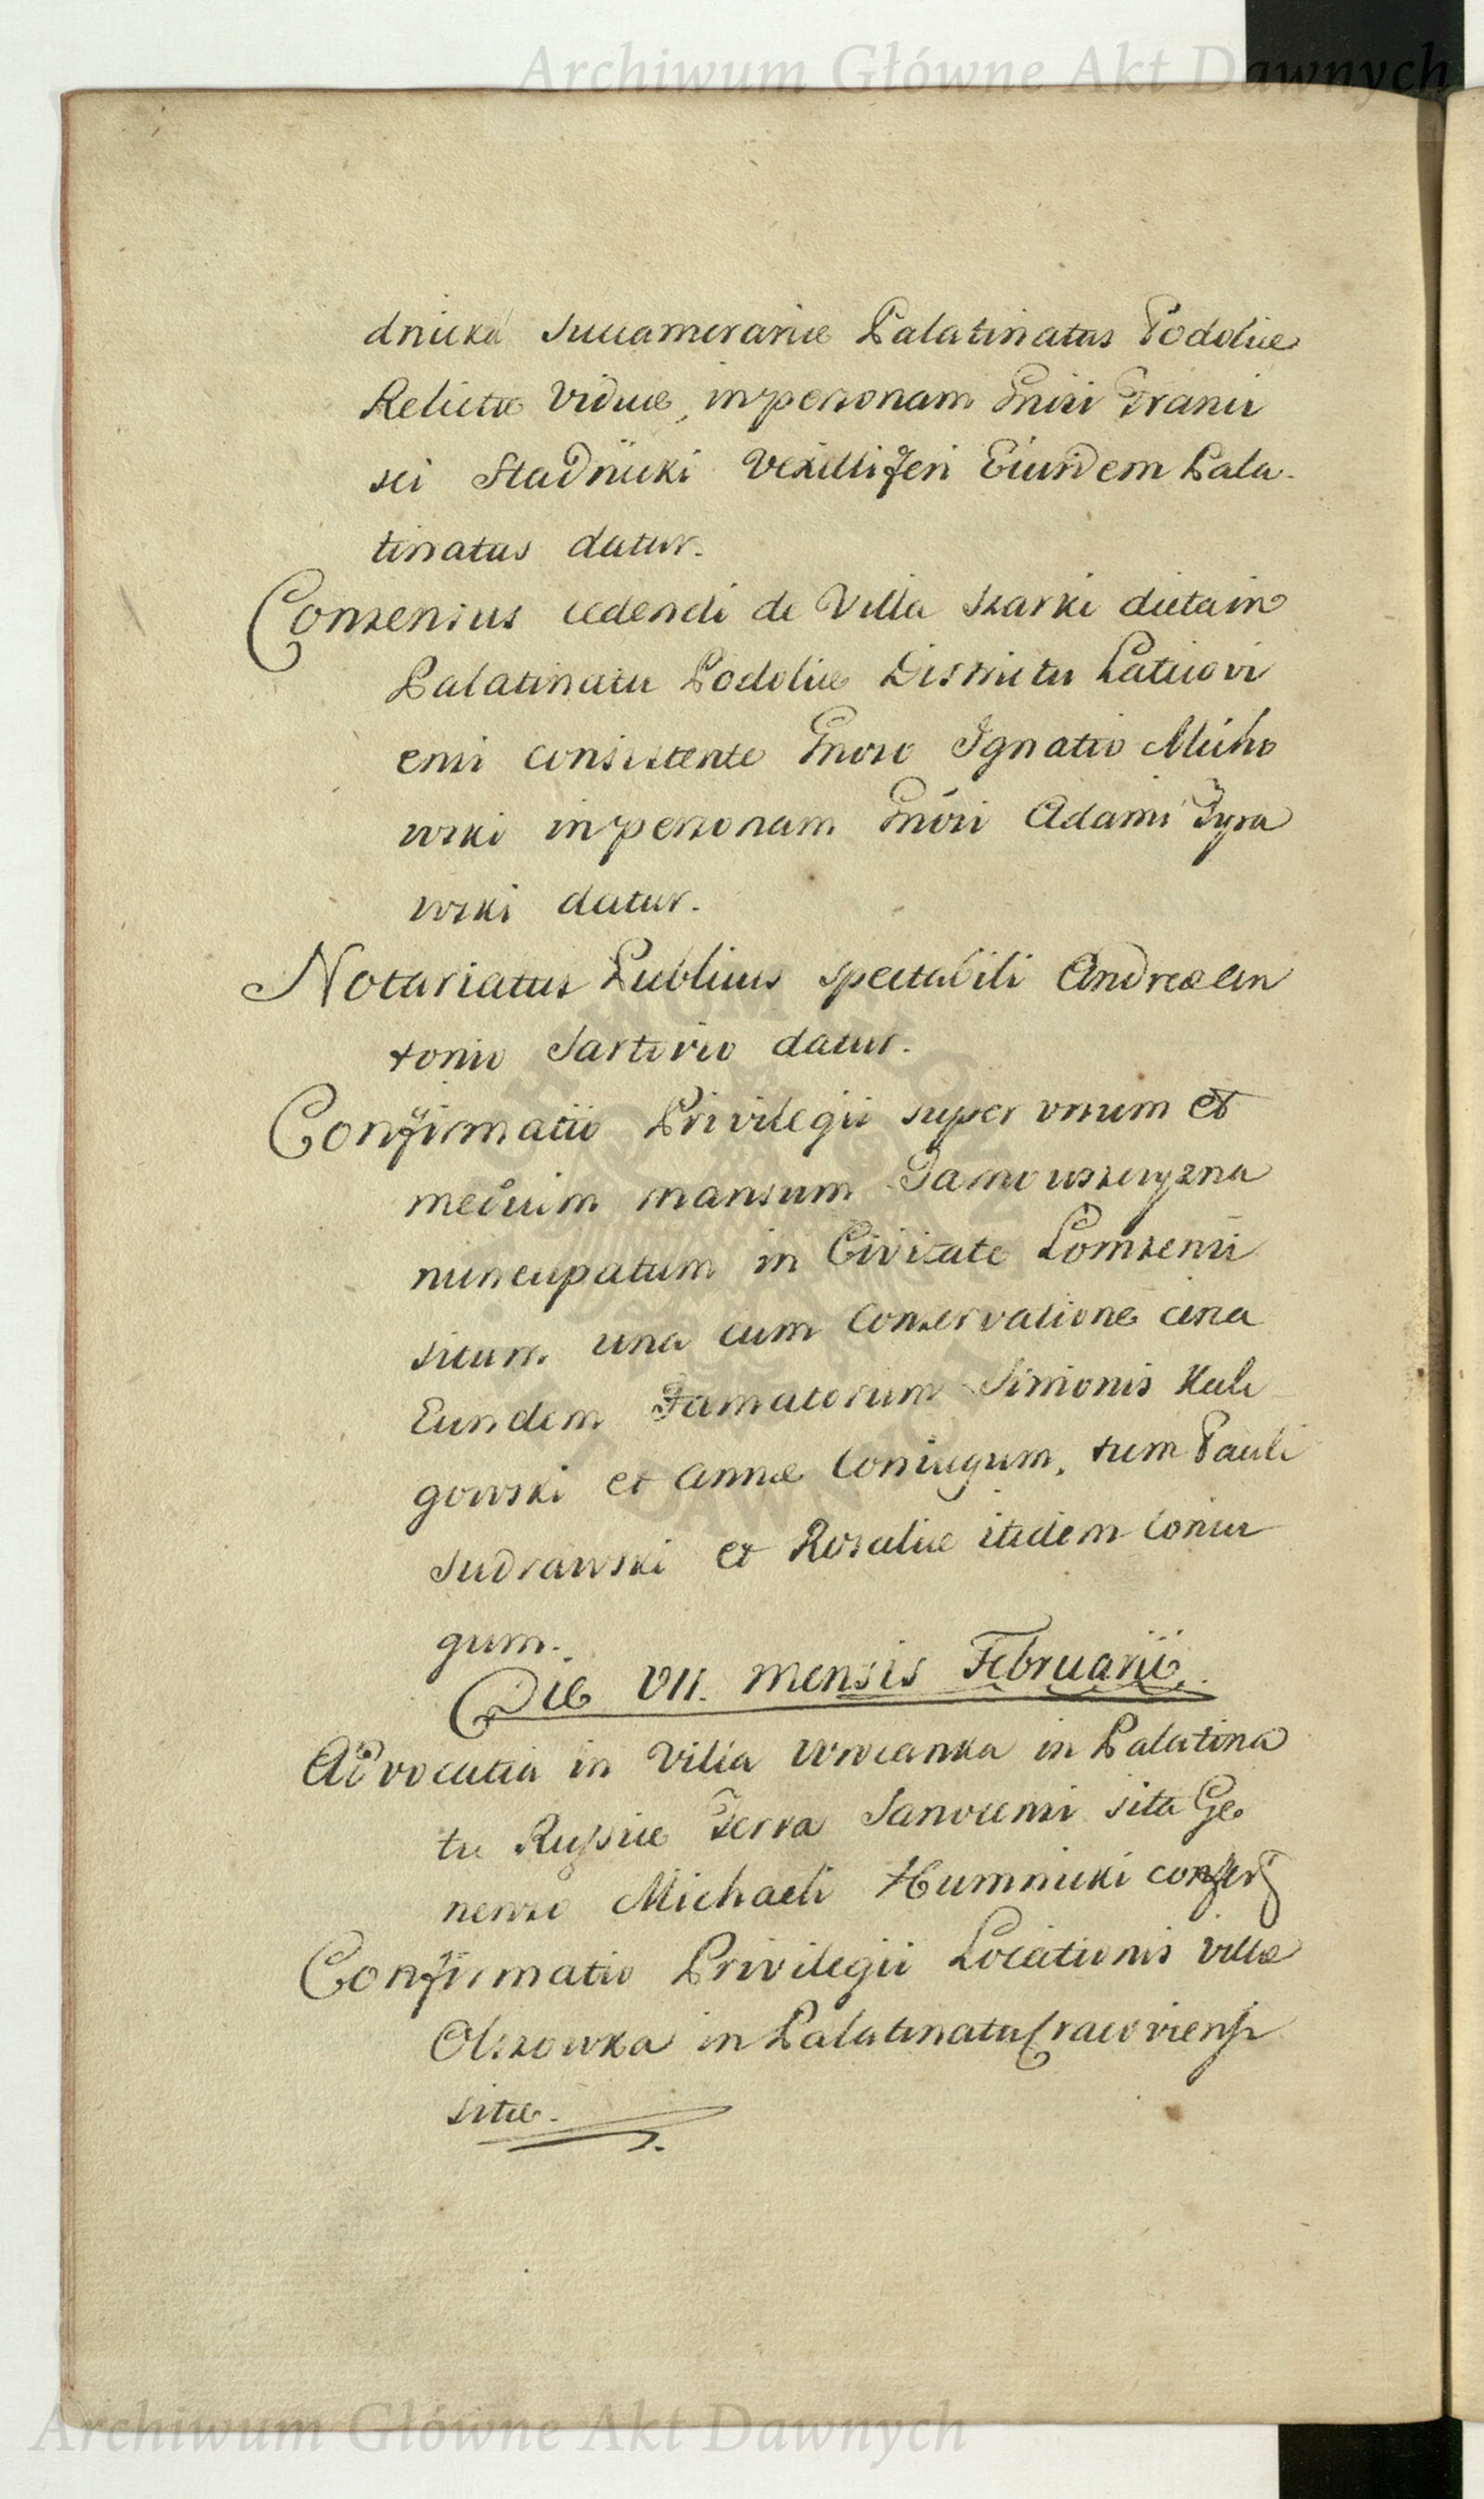 Archiwum Główne Akt Dawnych
dnicka Succamerariæ Palatinatus Podoliæ
Relictæ Viduæ, in personam Gnisi Franci
sci Stadnicki Vexilliferi Eiusdem Pala-
tinatus datur.
Consensus cedendi de Villa Szarki dicta in
Palatinatu Podoliæ Districtu Laticovi
ensi consistente Gnoso Ignatio Micho
wski in personam Gnosi Adami Tyra
wski datur.
Notariatus Publicus spectabili Andreæ An
tonio Sartorio datur.
Confirmatio Privilegii super unum et
medium mansum Janowszczyzna
nuncupatum in Civitate Lomzensi
situm una cum Conservatione circa
Eundem Famatorum Simonis Kuli
gowski et Annæ Coniugum, tum Pauli
Sudrawski et Rosaliæ itidem Coniu
gum.
Die VII. mensis Februarii.
Advocatia in Villa Wrocanka in Palatina
tu Russiæ Terra Sanocensi sita Ge
neroso Michaeli Humnicki confert
Confirmatio Privilegii Locationis villæ
Olszowka in Palatinatu Cracoviensi
sitæ.
Archiwum Główne Akt Dawnych